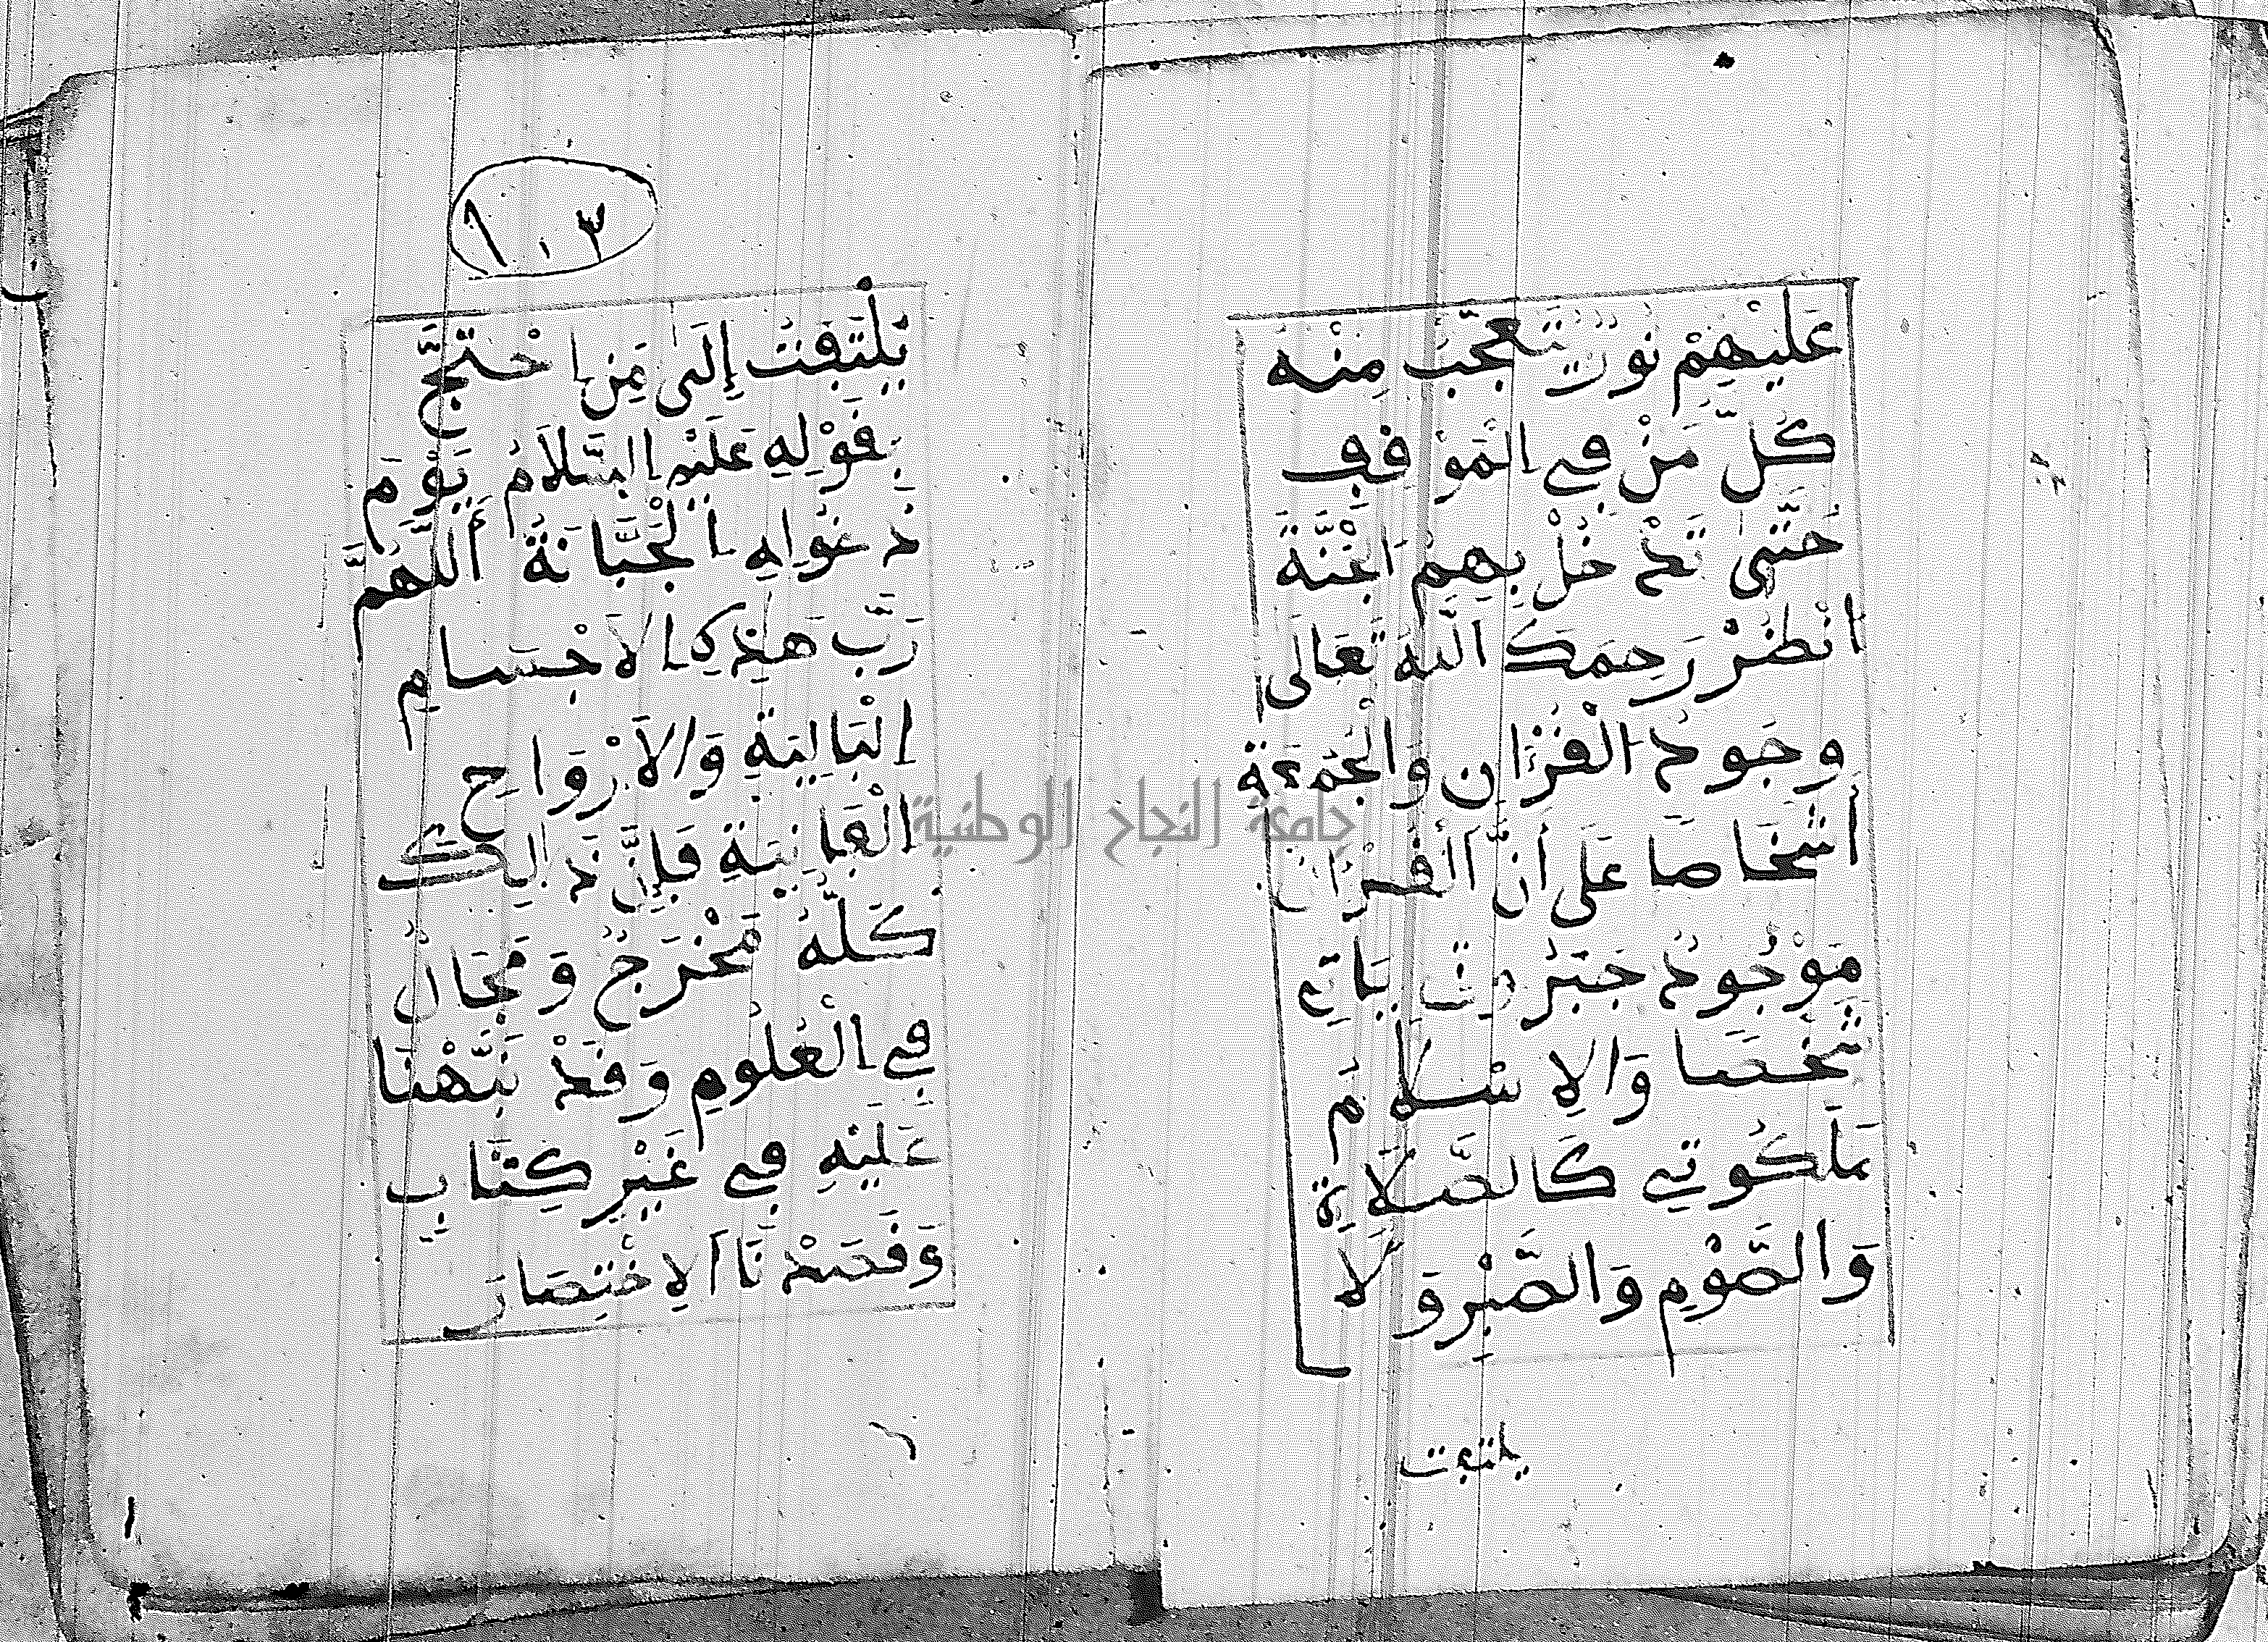 عَلَيْهِمْ نُورٌ يَتَعَجَّبُ مِنْه
كُلُّ مَنْ فِي الْمَوْقِفِ
حَتَّى تَدْخُلَ بِهِمُ الْجَنَّةَ
انْظُرْ رَحِمَكَ اللهُ تَعَالَى
وُجُودَ الْقُرْءَانِ وَالْجُمُعَةِ
أَشْخَاصًا عَلَى أَنَّ الْقُرْءَانَ
مَوْجُودٌ جَبَرُوتٌ يَاتِي
شَخْصًا وَالإِسْلَامَ
مَلَكُوتِي كَالصَّلَاةِ
وَالصَّوْمِ وَالصَّبْرِ وَلَا
يلتفت
١٠٣
يُلْتَفَتُ إِلَى مَنِ احْتَجَّ
بِقَوْلِهِ عَلَيْهِ السَّلَامُ يَوْمَ
دُعَوَاهِ الْجَبَّانَةُ أَللَّهُمَّ
رَبَّ هَذِهِ الأَجْسَامِ
الْبَالِيَةِ وَالأَرْوَاحِ
الْفَانِيَةِ فَإِنَّ ذَالِكَ
كُلَّهُ مَخْرَجٌ وَمَجَالٌ
فِي الْعُلُومِ وَقَدْ نَبَّهْنَا
عَلَيْهِ فِي غَيْرِ كِتَابٍ
وَقَصَدْنَا الاِخْتِصَارَ
جامعة النجاح الوطنية